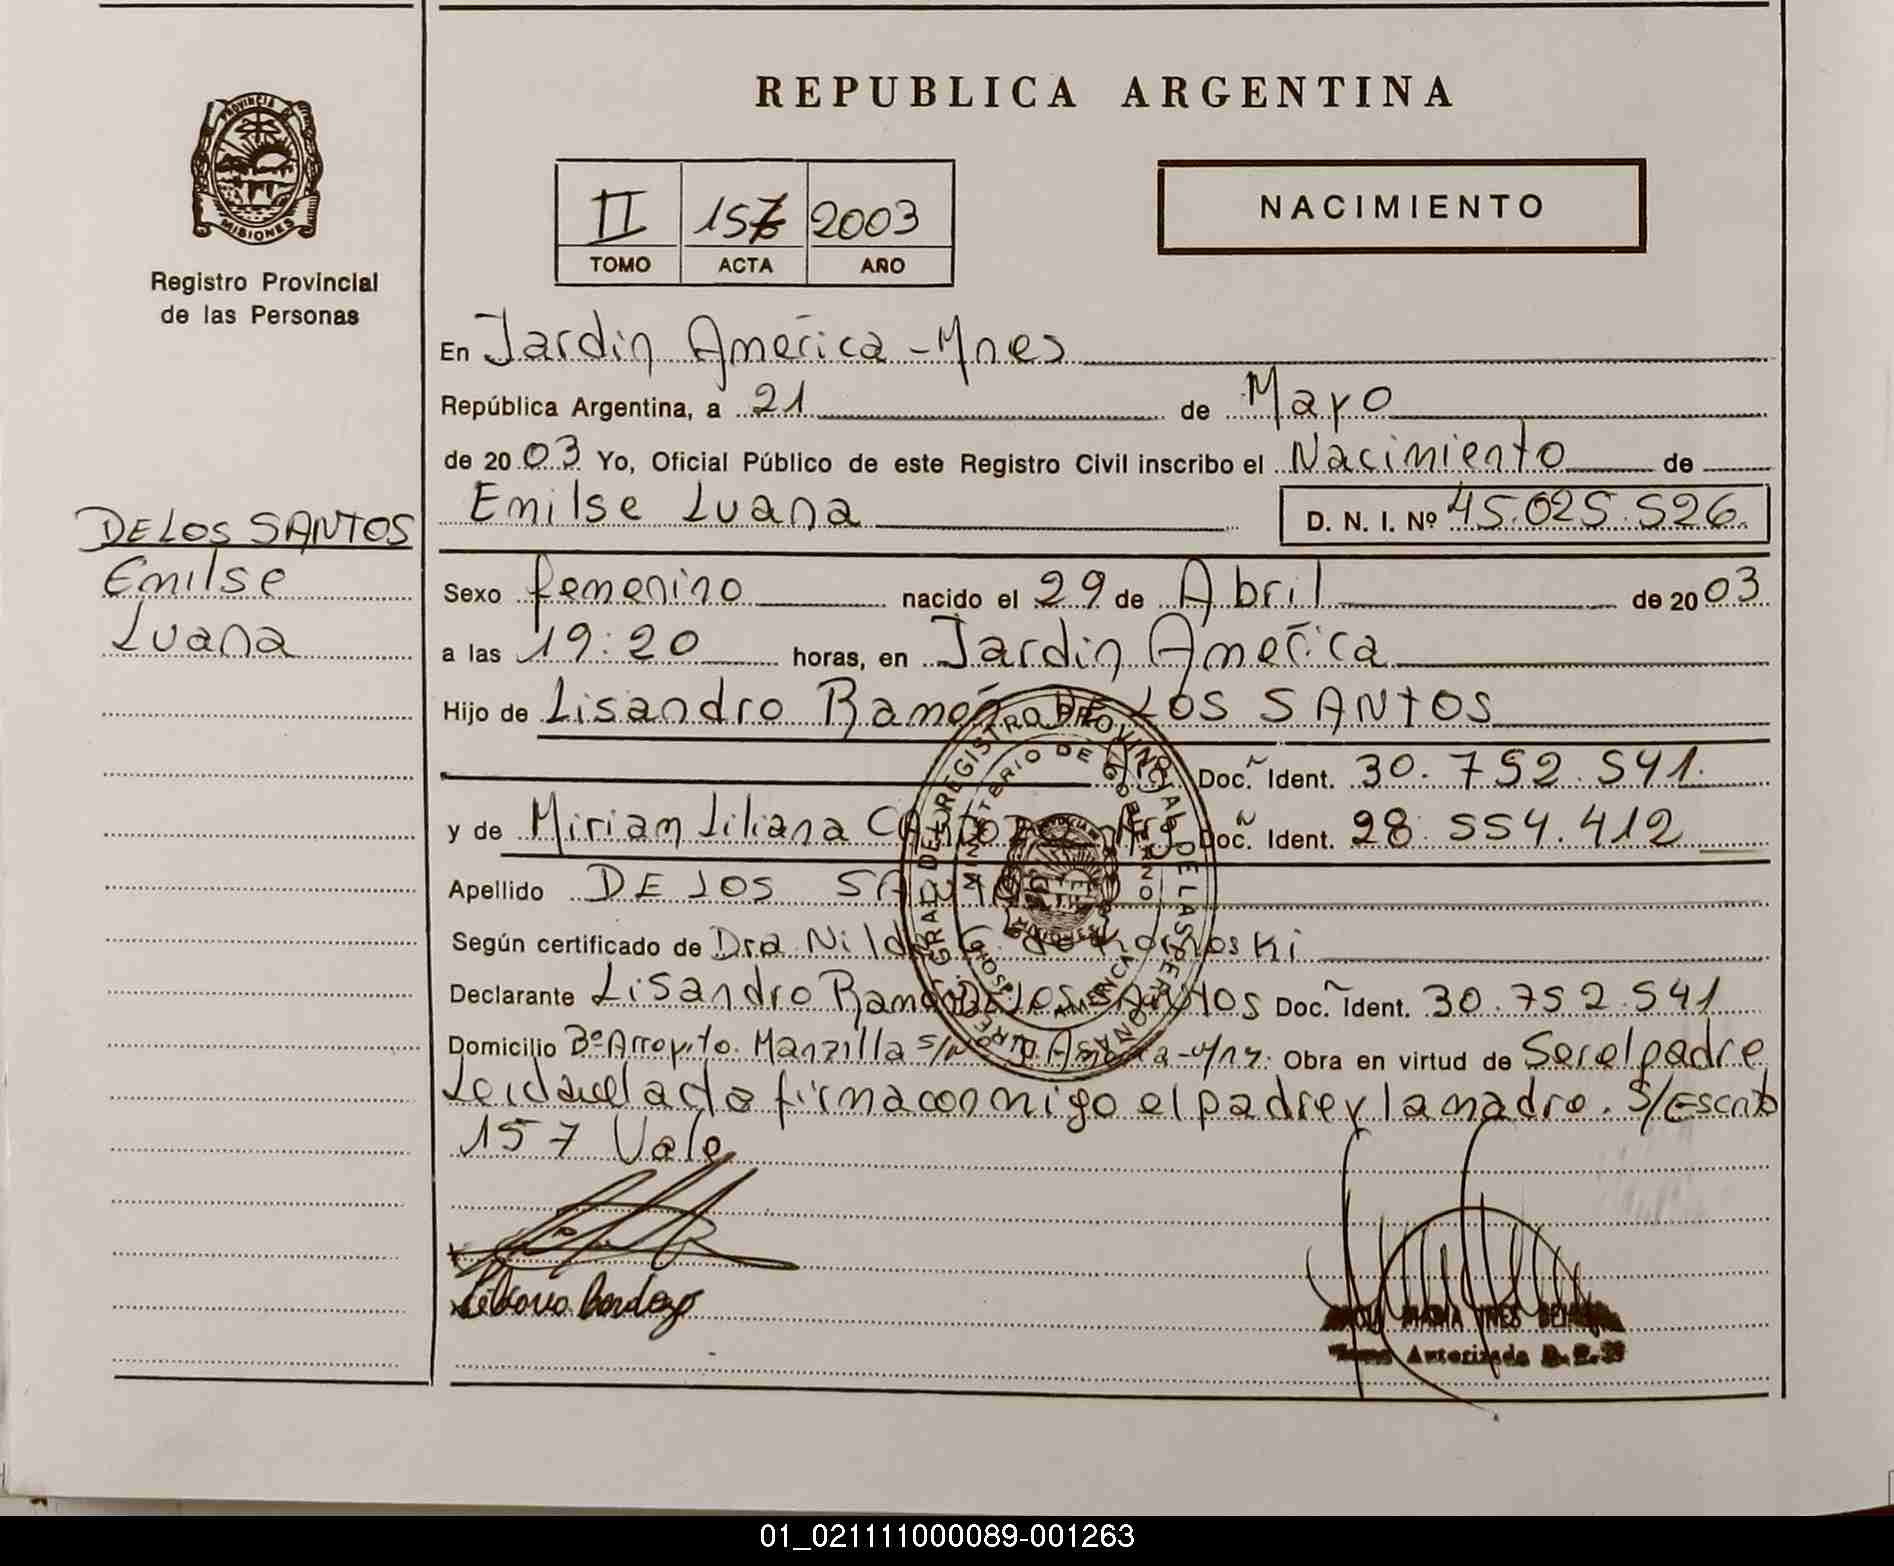 REPUBLICA ARGENTINA
PROVINCIA DE
MISIONES
Registro Provincial
de las Personas
II 157 2003
TOMO ACTA AÑO
NACIMIENTO
En Jardin América - Mnes
República Argentina, a 21 de Mayo
de 2003 Yo, Oficial Público de este Registro Civil inscribo el Nacimiento de
Emilse Luana D. N. I. Nº 45.025.526.
DE LOS SANTOS
Emilse
Luana
Sexo femenino nacido el 29 de Abril de 2003
a las 19:20 horas, en Jardin América
Hijo de Lisandro Ramón DE LOS SANTOS
Arg Doc. Ident. 30.752.541.
y de Miriam Liliana Arg Doc. Ident. 28.554.412
Apellido DE LOS SANTOS
Según certificado de Dra. Nilda G. de
Declarante Lisandro Ramón DE LOS SANTOS Doc. Ident. 30.752.541
Domicilio Bº Arroyito. Manzilla s/nº J. América - Obra en virtud de Ser el padre
Leida el acta firma conmigo el padre y la madre. S/Escrito
157 Vale
REGISTRO PROVINCIAL DE LAS PERSONAS
MINISTERIO DE GOBIERNO
MARIA INES
Autorizada
01_021111000089-001263